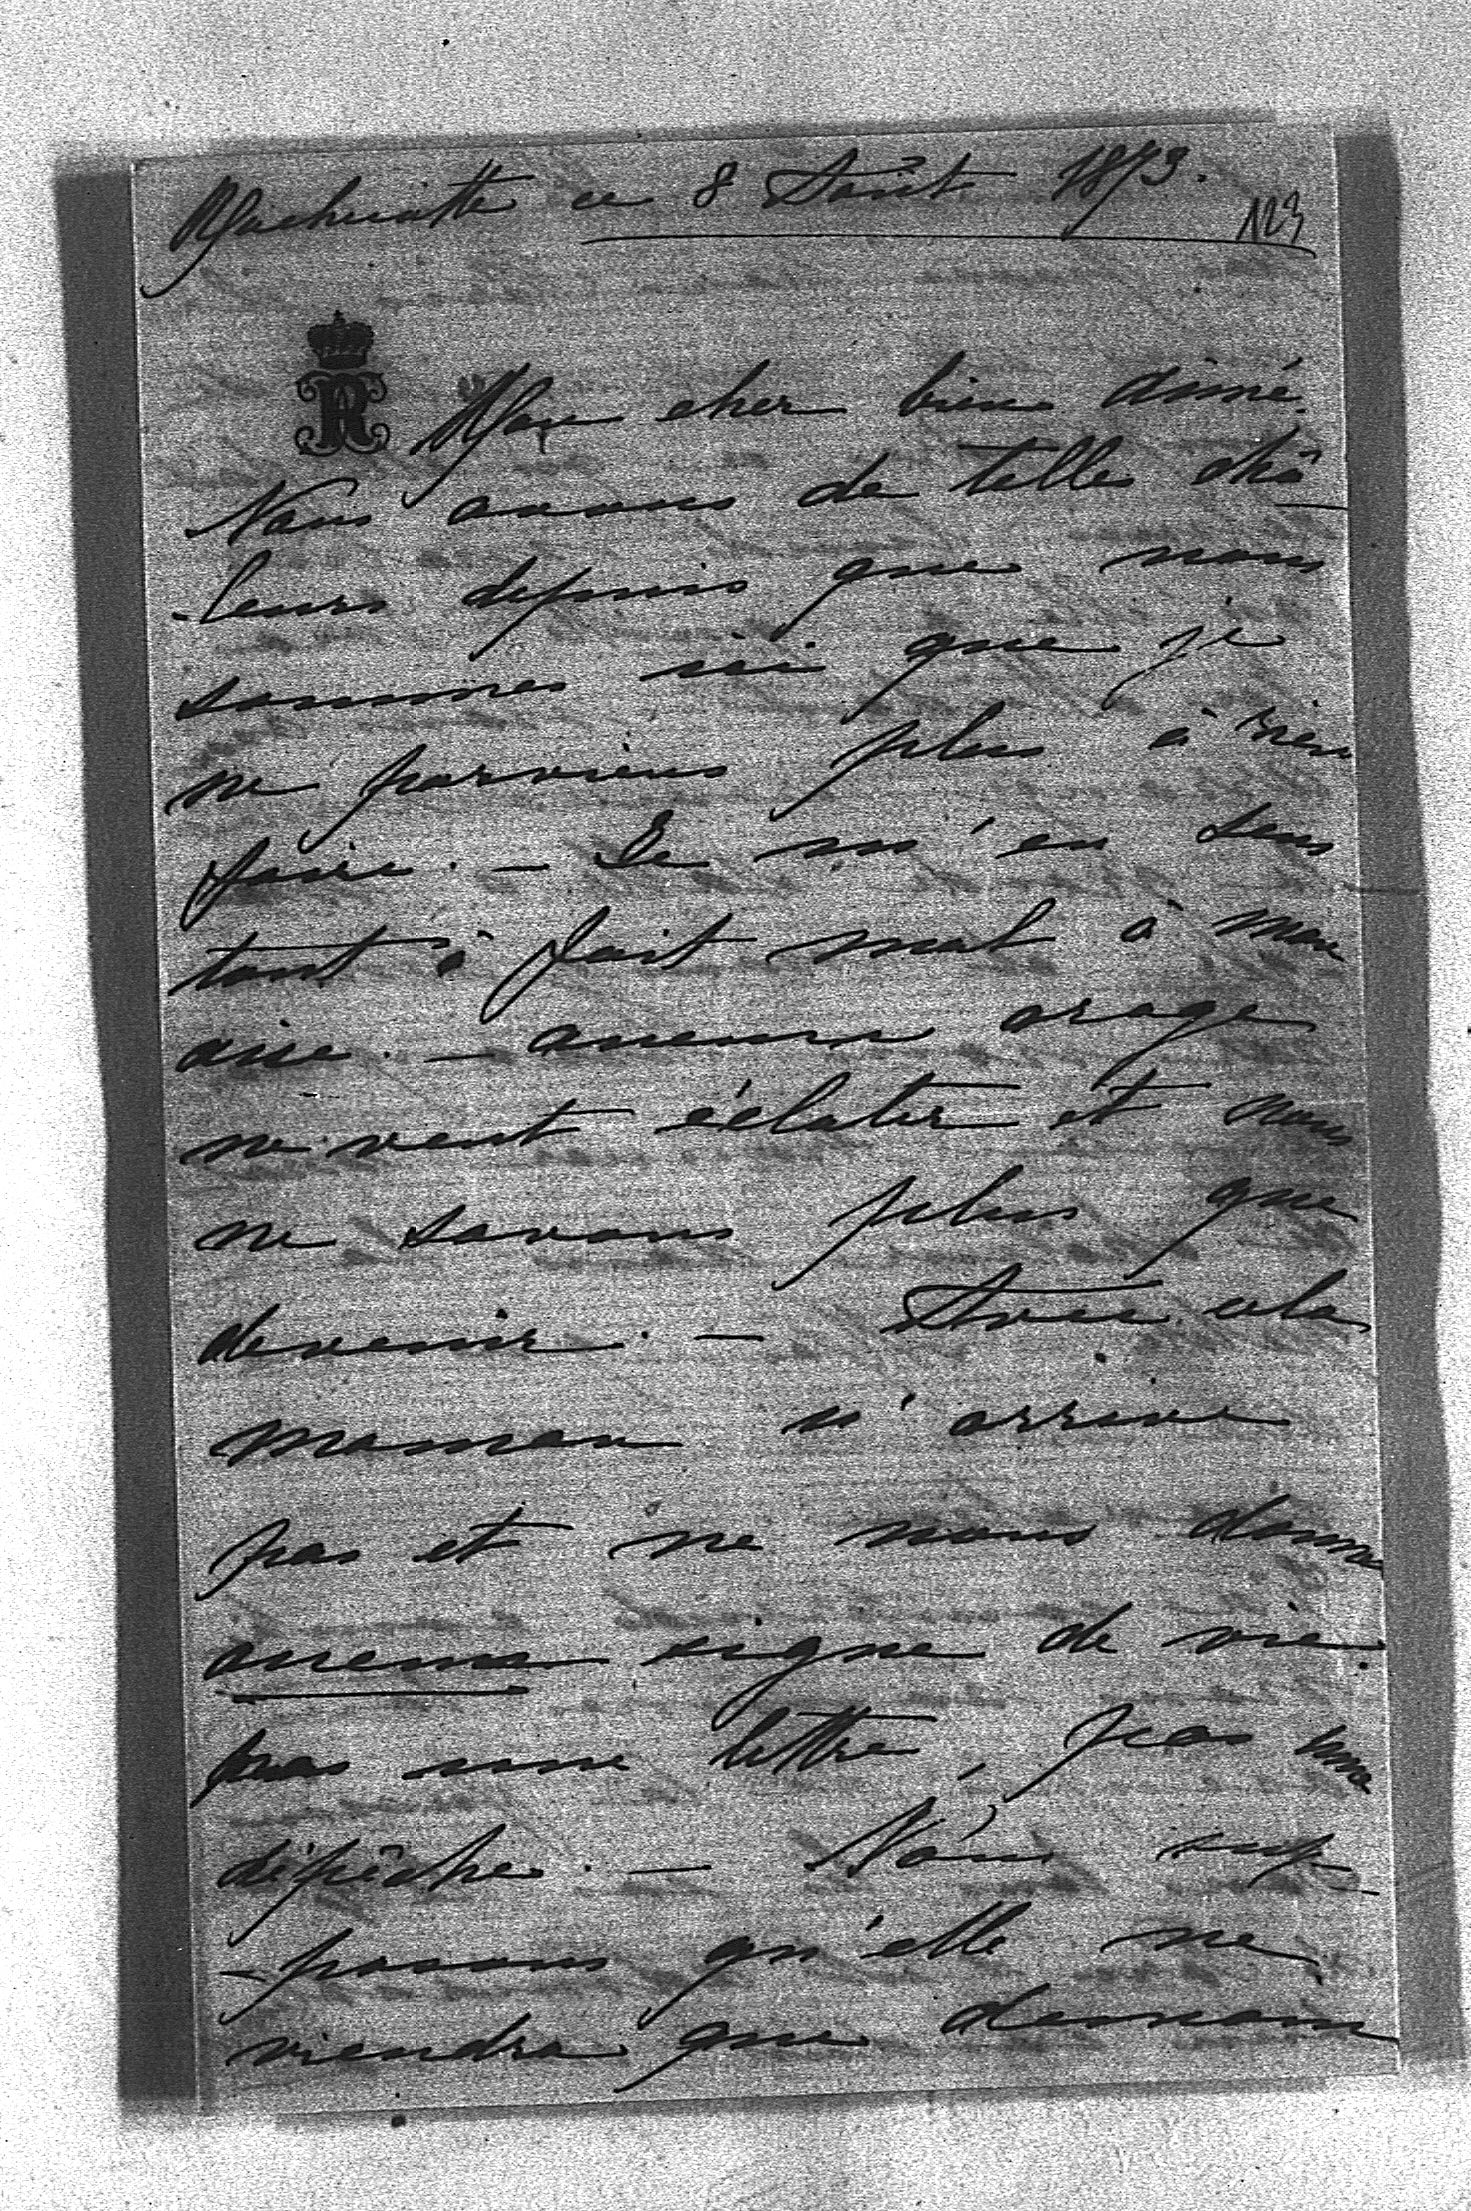 ce 8 Août 1873.
123
R
Mon cher bien aimé.
Nous avons de telle cha-
leurs depuis que nous
sommes ici que je
ne parviens plus à rien
faire. — Je m'en sens
tout à fait mal à mon
aise. — aucun orage
ne veut éclater et nous
ne savons plus que
devenir. — Avec cela
maman n'arrive
pas et ne nous donne
aucun signe de vie.
pas une lettre, pas une
dépêche. — Nous sup-
-posons qu'elle ne
viendra que demain